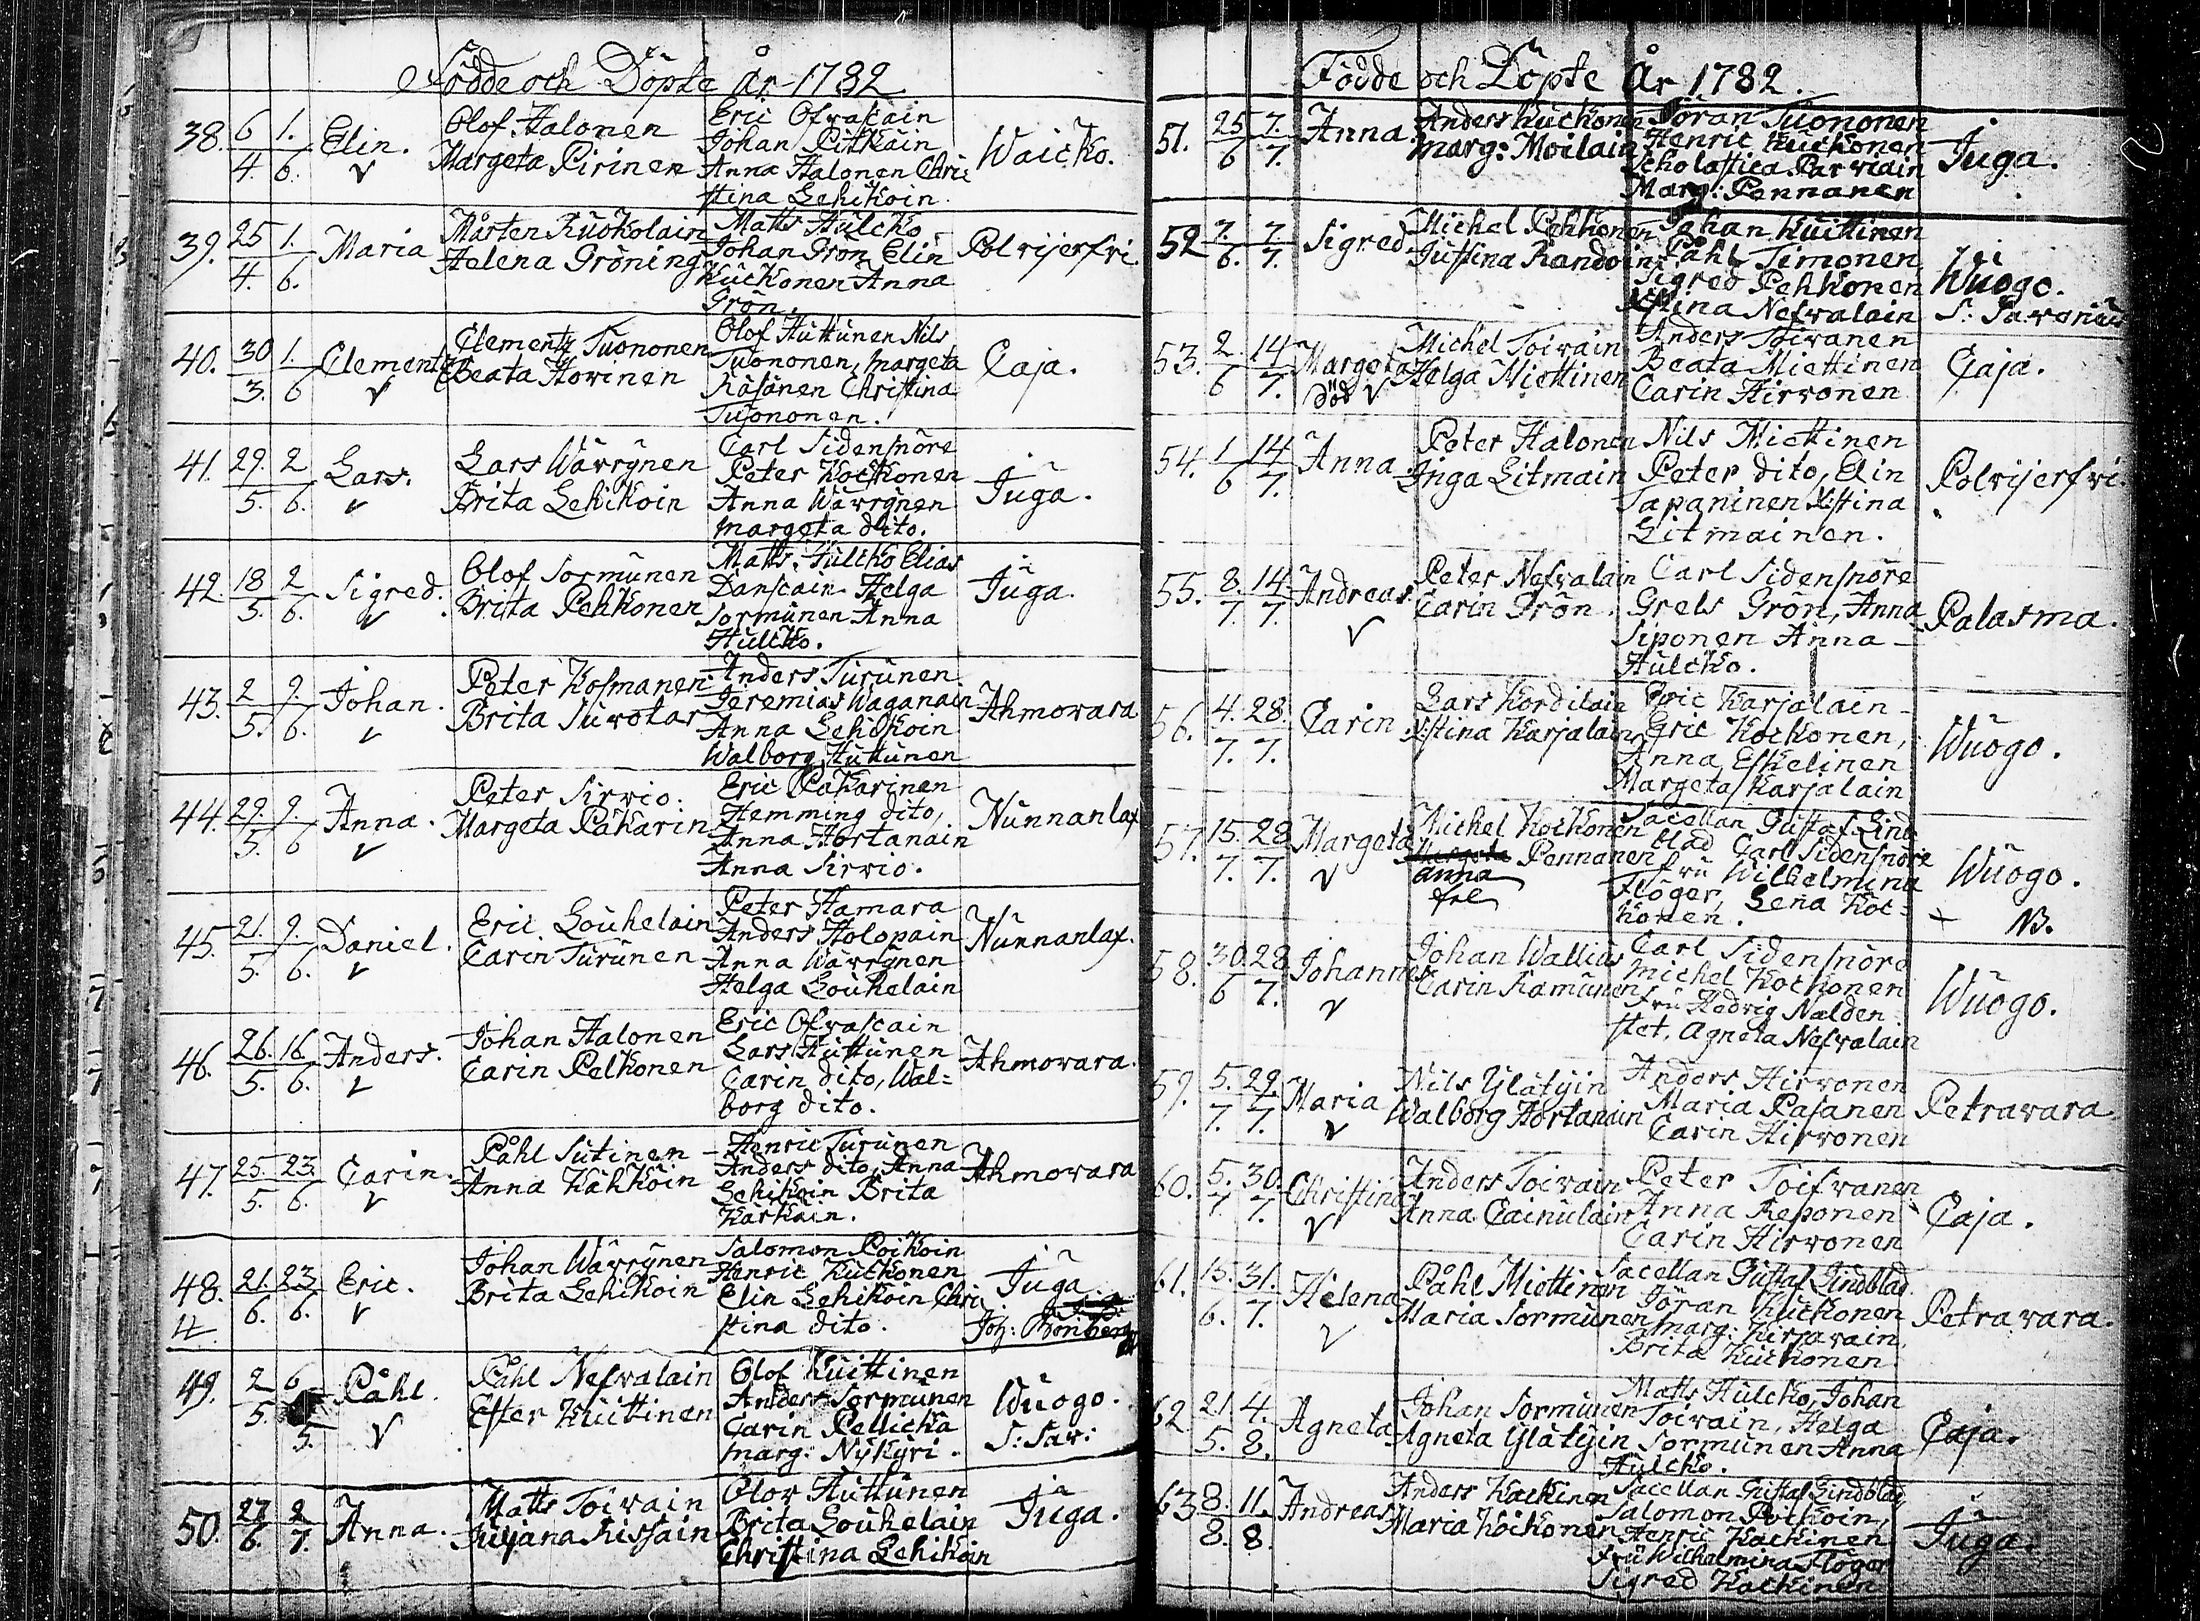 Födde och Döpte år 1782
38. 6/4. 1./6. Elin. Olof Halonen Margeta Pirinen
Eric Ofvascain
Johan Pitkäin
Anna Halonen Chri-
stina Lehikoin.
Waicko.
39. 25/4. 1./6. Maria Mårten Ruokolain Helena Gröning
Matts Hulcko
Johan Grön Elin
Kuckonen Anna
Grön.
Polvijerfvi.
40. 30/3. 1./6 Clements Clements Tuononen Beata Hovinen
Olof Huttunen Nils
Tuononen, Margeta
Räsänen Christina
Tuononen.
Caja.
41. 29./5. 2/6. Lars. Lars Wärrynen Brita Lehikoin
Carl Sidensnöre
Peter Kockonen
Anna Wärrynen
Margeta dito.
Juga.
42. 18/5. 2/6. Sigred. Olof Sormunen Brita Pehkonen
Matts Hulcko Elias
Danscain Helga
Sormunen Anna
Hulcko.
Juga.
43. 2/5. 9./6. Johan. Peter Kosmanen Brita Surotar
Anders Turunen
Jeremias Waganain
Anna Lehikoin
Walborg Huttunen
Ahmovara
44. 29./5. 9./6 Anna. Peter Sirvio. Margeta Pakarin
Eric Pakarinen
Hemming dito,
Anna Hortanain
Anna Sirvio.
Nunnanlax
45. 21./5. 9./6. Daniel. Eric Louhelain Carin Turunen
Peter Hamara
Anders Holopain
Anna Wärrynen
Helga Louhelain
Nunnanlax.
46. 26./5. 16./6. Anders. Johan Halonen Carin Pelkonen
Eric Ofvascain
Lars Huttunen
Carin dito, Wal=
borg dito.
Ahmovara.
47. 25./5. 23./6. Carin. Påhl Sutinen Anna Kähköin
Henric Turunen
Anders dito, Anna
Lehikoin Brita
Kärkäin.
Ahmovara
48. 21./6. 23./6. Eric. Johan Wärrynen Brita Lehikoin
Salomon Poikoin
Henric Kuckonen
Elin Lehikoin Chri
stina dito.
Juga.
49. 2/5. 6/5. Påhl. Påhl Nefvalain Ester Kuittinen
Olof Kuittinen
Anders Sormunen
Carin Pellicka
Marg: Nykyri.
Wuogo.
S: Sav:
50. 27/6. 2/7. Anna. Matts Toivain Juliana Kissain
Olov Huttunen
Brita Louhelain
Christina Lehikoin
Juga.
Födde och Döpte År 1782.
51. 25/6 7./7. Anna. Anders Kuckonen Marg: Moilain
Jöran Tuononen
Henric Kuckonen
Scholastica Parviain
Marg: Pennanen
Juga.
52 7./6. 7./7. Sigred Michel Pehkonen Justina Randoin
Johan Kuittinen
Påhl Timonen,
Sigred Pehkonen
Xstina Nefvalain
Wuogo.
53. 2./6 14/7. Margeta död Michel Toivain Helga Miettinen
Anders Toivanen
Beata Miettinen
Carin Hirvonen
Caja.
54. 1/6 14/7. Anna Peter Halonen Inga Litmain
Nils Miettinen
Peter dito, Elin
Tapaninen Xstina
Litmainen.
Polvijerfvi.
55. 8./7. 14/7. Andreas Peter Nefvalain Carin Grön.
Carl Sidensnöre
Grels Grön, Anna
Siponen Anna
Hulcko.
Palasma.
56. 4./7. 28./7. Carin Lars Kordilain Xstina Karjalain
Eric Karjalain
Eric Kockonen,
Anna Eskelinen
Margeta Karjalain
Wuogo.
57. 15./7. 28/7. Margeta Michel Kockonen Pennanen
Anna
Sacellan Gustaf Lind
blad Carl Sidensnöre
fru Wilhelmina
Flöger, Lena Koc=
konen.
Wuogo.
NB.
58. 30./6 28/7. Johannes Johan Wallius Carin Ramunen
Carl Sidensnöre
Michel Kockonen
Fru Hedvig Nalden
stet, Agneta Nefvalain
Wuogo.
59. 5./7. 29./7. Maria Nils Ylätyin Walborg Hortanain
Anders Hirvonen
Maria Pasanen
Carin Hirvonen
Petravara
60. 5./7 30./7. Christina Anders Toivain Anna Cainulain
Peter Toifvanen
Anna Reponen
Carin Hirvonen
Caja.
61. 15./6. 31./7. Helena Påhl Miettinen Maria Sormunen
Sacellan Gustaf Lindblad
Jöran Kuckonen
Marg: Kirjavain,
Brita Kuckonen.
Petravara.
62 21/5. 4./8. Agneta Johan Sormunen Agneta Ylätyin
Matts Hulcko, Johan
Toivain, Helga
Sormunen Anna
Hulcko.
Caja.
63 8./8. 11./8. Andreas Anders Kackinen Maria Kockonen
Sacellan Gustaf Lindblad
Salomon Poikoin,
Henric Kackinen
Fru Wilhelmina Flöger
Sigred Kackinen
Juga.